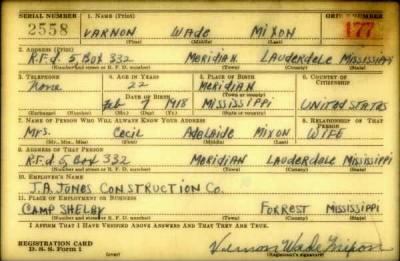 SERIAL NUMBER 1. NAME (Print) ORDER NUMBER
2558 VARNON WADE MIXON 177
(First) (Middle) (Last)
2. ADDRESS (Print)
R.F.d. 5, Box 332 MERIDIAN LAUDERDALE MISSISSIPPI
(Number and street or R. F. D. number) (Town) (County) (State)
3. TELEPHONE 4. AGE IN YEARS 5. PLACE OF BIRTH 6. COUNTRY OF CITIZENSHIP
None 22 MERIDIAN
DATE OF BIRTH (Town or county)
Feb 7 1918 MISSISSIPPI UNITED STATES
(Exchange) (Number) (Mo.) (Day) (Yr.) (State or country)
7. NAME OF PERSON WHO WILL ALWAYS KNOW YOUR ADDRESS 8. RELATIONSHIP OF THAT PERSON
MRS. Cecil Adelaide Mixon WIFE
(Mr., Mrs., Miss) (First) (Middle) (Last)
9. ADDRESS OF THAT PERSON
R.F.d 5, Box 332 MERIDIAN LAUDERDALE MISSISSIPPI
(Number and street or R. F. D. number) (Town) (County) (State)
10. EMPLOYER'S NAME
J.A. JONES CONSTRUCTION CO.
11. PLACE OF EMPLOYMENT OR BUSINESS
CAMP SHELBY FORREST MISSISSIPPI
(Number and street or R. F. D. number) (Town) (County) (State)
I AFFIRM THAT I HAVE VERIFIED ABOVE ANSWERS AND THAT THEY ARE TRUE.
REGISTRATION CARD
D. S. S. Form 1 (over) Vernon Wade Mixon
(Registrant's signature)